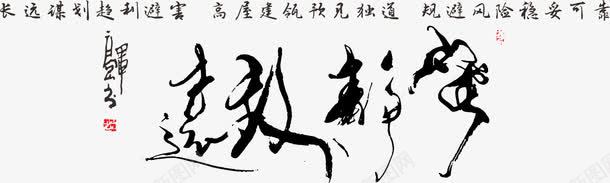 长远谋划趋利避害 高屋建瓴预见独道 规避风险稳妥可靠
寧静致遠